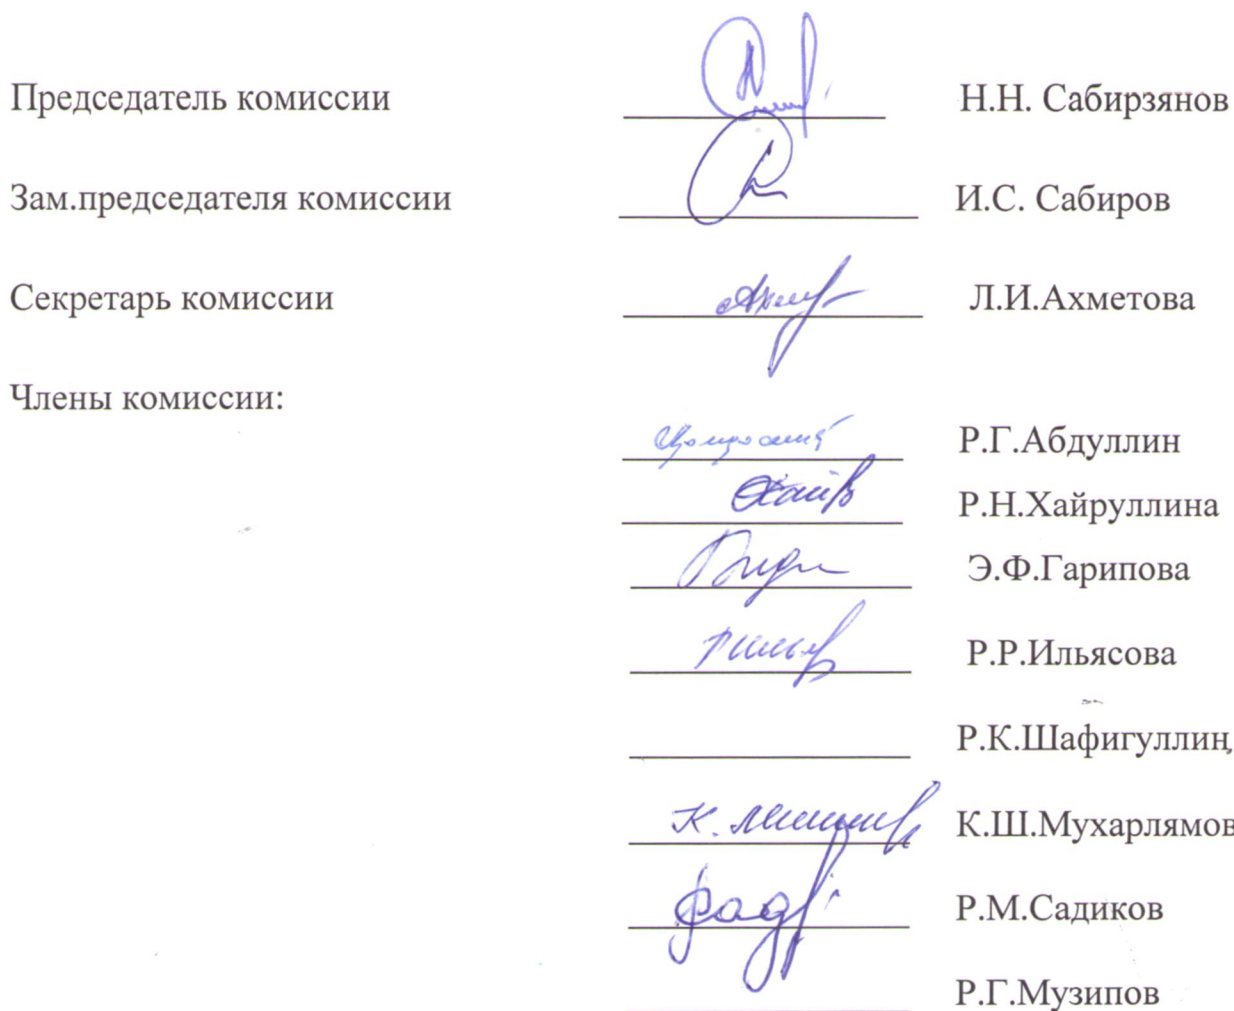 Председатель комиссии Н.Н. Сабирзянов
Зам.председателя комиссии И.С. Сабиров
Секретарь комиссии Л.И.Ахметова
Члены комиссии:
Р.Г.Абдуллин
Р.Н.Хайруллина
Э.Ф.Гарипова
Р.Р.Ильясова
Р.К.Шафигуллин,
К.Ш.Мухарлямов
Р.М.Садиков
Р.Г.Музипов